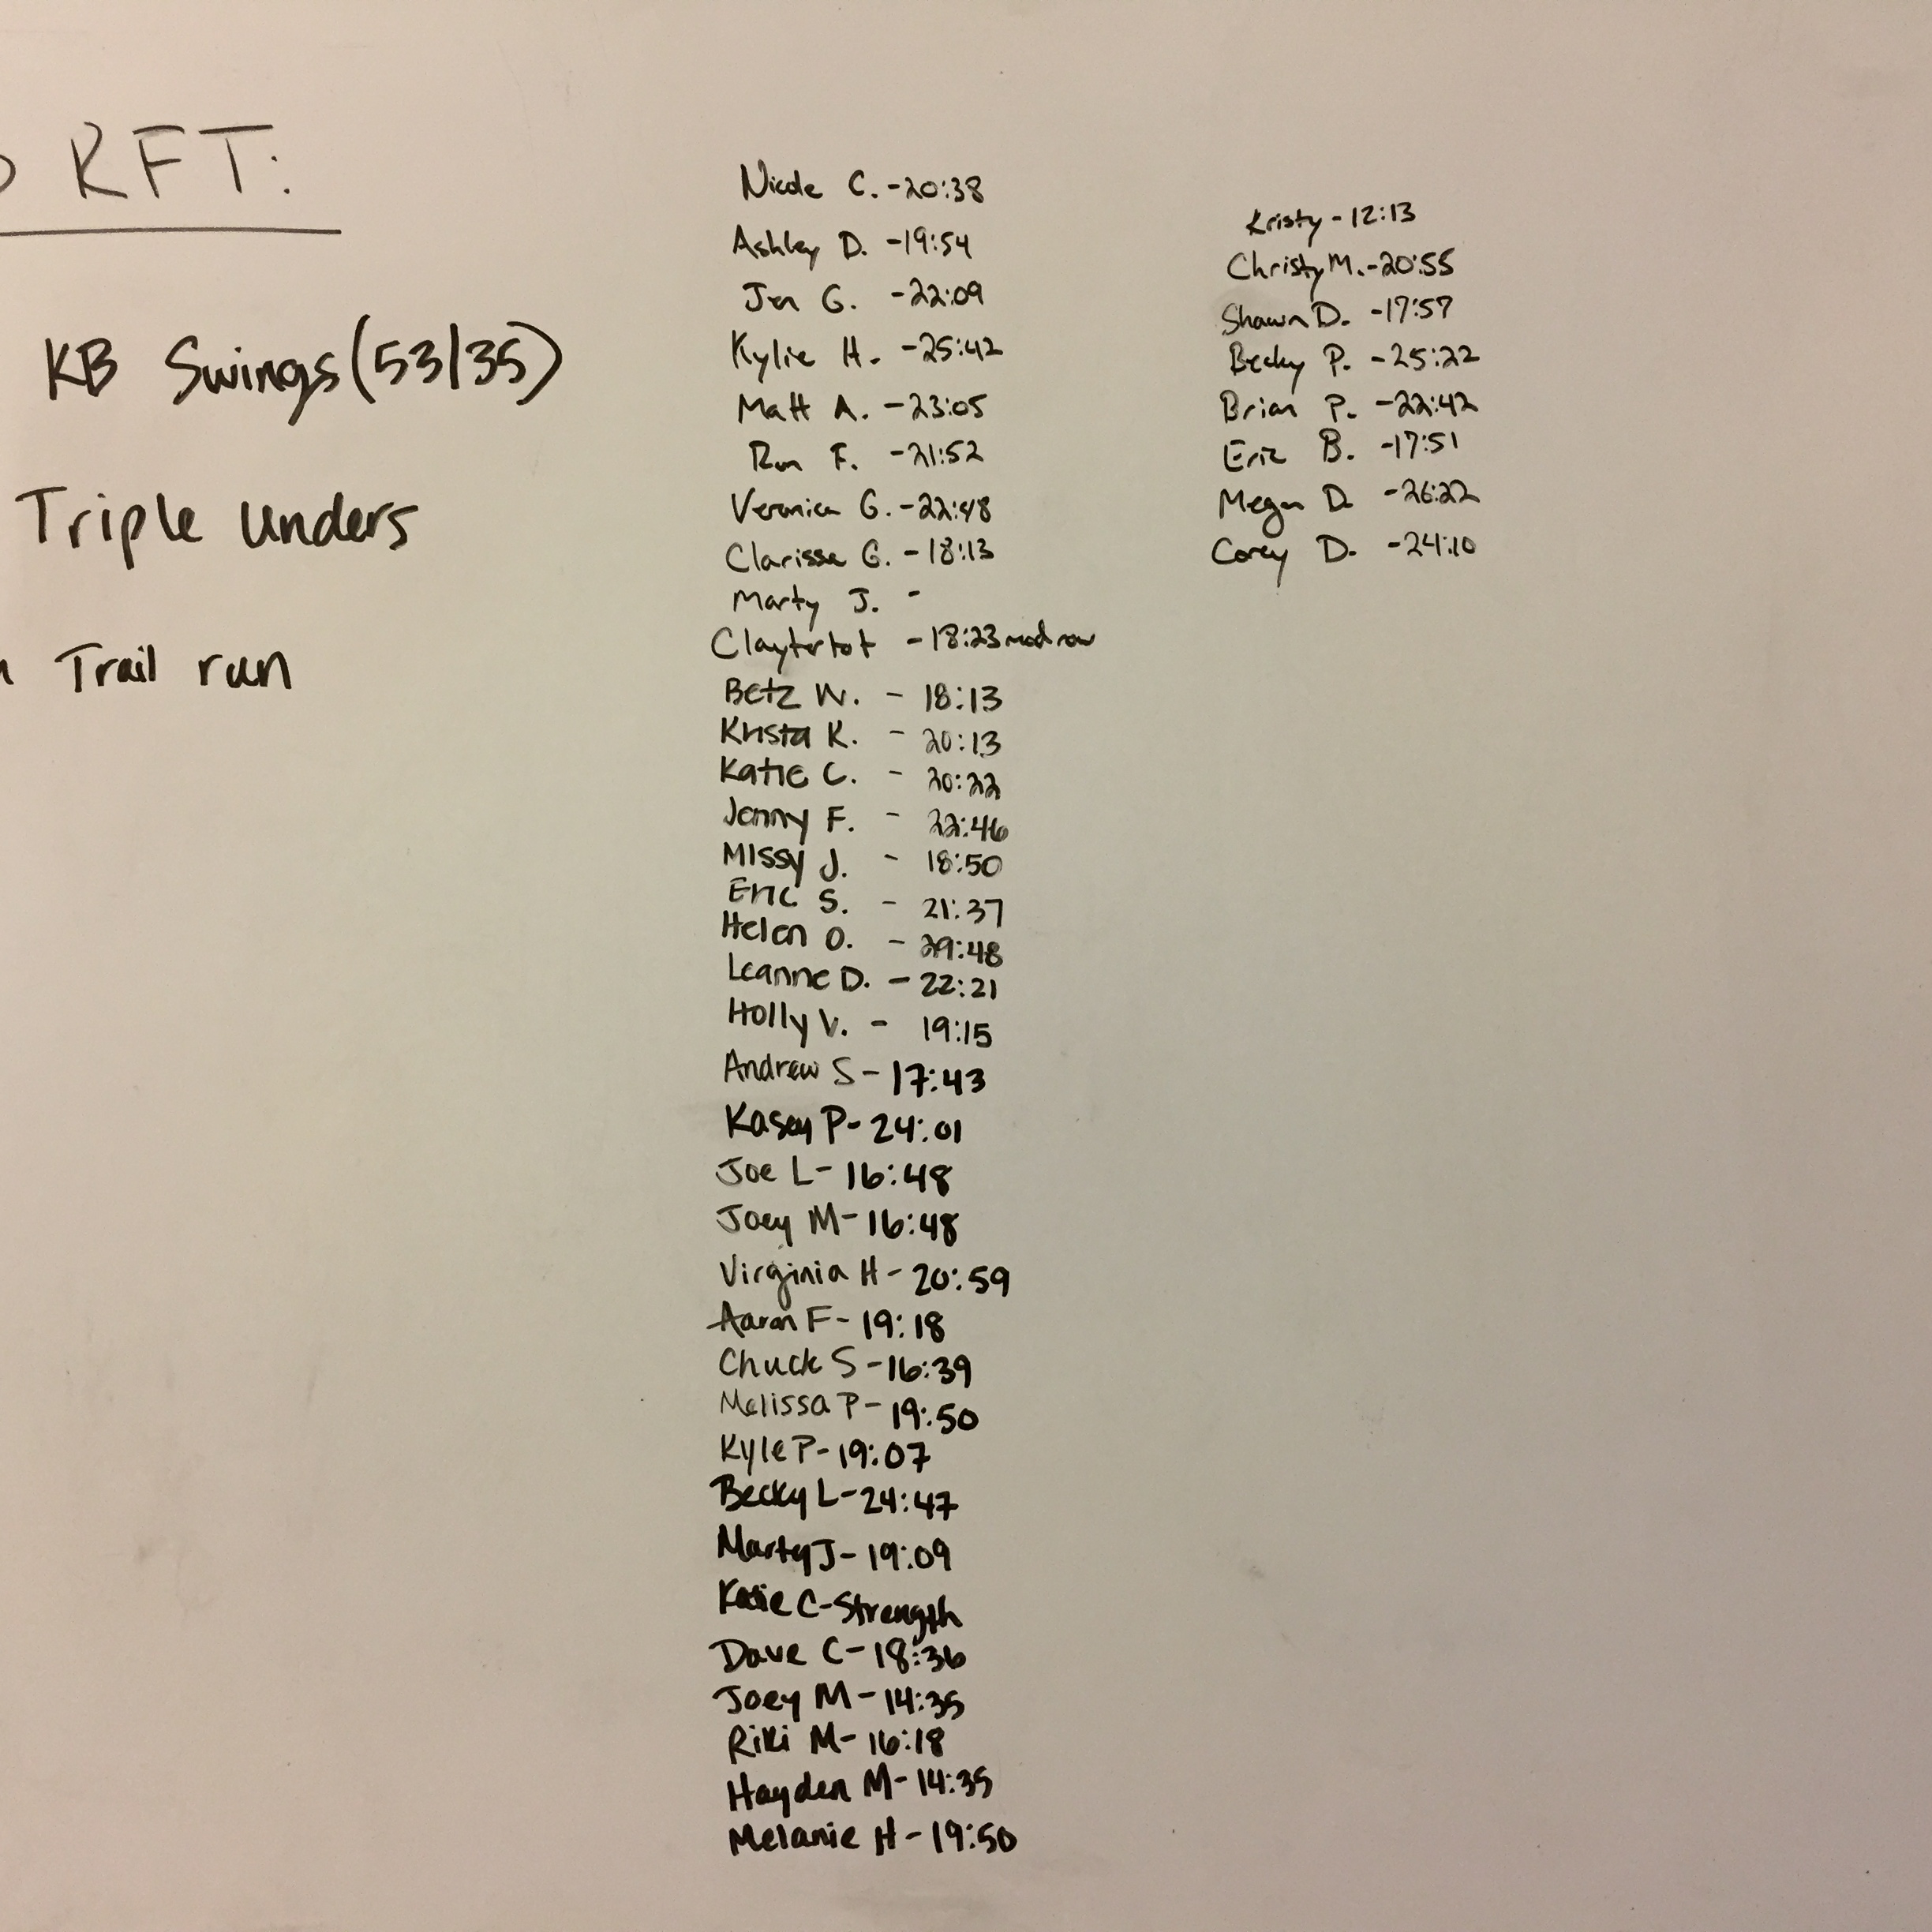 RFT:
KB Swings (53/35)
Triple Unders
Trail run
Nicole C. - 20:38
Ashley D. - 19:54
Jen G. - 22:09
Kylie H. - 25:42
Matt A. - 23:05
Ron F. - 21:52
Veronica G. - 22:48
Clarissa G. - 18:13
Marty J. -
Claytertot - 18:23 mod row
Betz W. - 18:13
Krista K. - 20:13
Katie C. - 20:22
Jenny F. - 22:46
Missy J. - 18:50
Eric S. - 21:37
Helen O. - 29:48
Leanne D. - 22:21
Holly V. - 19:15
Andrew S - 17:43
Kasey P - 24:01
Joe L - 16:48
Joey M - 16:48
Virginia H - 20:59
Aaron F - 19:18
Chuck S - 16:39
Melissa P - 19:50
Kyle P - 19:07
Becky L - 24:47
Marty J - 19:09
Katie C - Strength
Dave C - 18:36
Joey M - 14:35
Riki M - 16:18
Hayden M - 14:35
Melanie H - 19:50
Kristy - 12:13
Christy M. - 20:55
Shawn D. - 17:57
Becky P. - 25:22
Brian P. - 22:42
Eric B. - 17:51
Megan D. - 26:22
Corey D. - 24:10